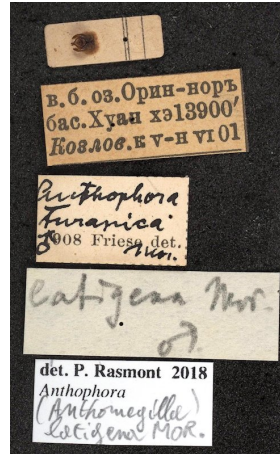 в.б. оз.Орин-норъ
бас.Хуан хэ 13900'
Козлов.к V-н VI 01
Anthophora
turanica
♂ 1908 Friese det.
Mor.
latigena Mor.
♂.
det. P. Rasmont 2018
Anthophora
(Anthomegilla)
latigena MOR.